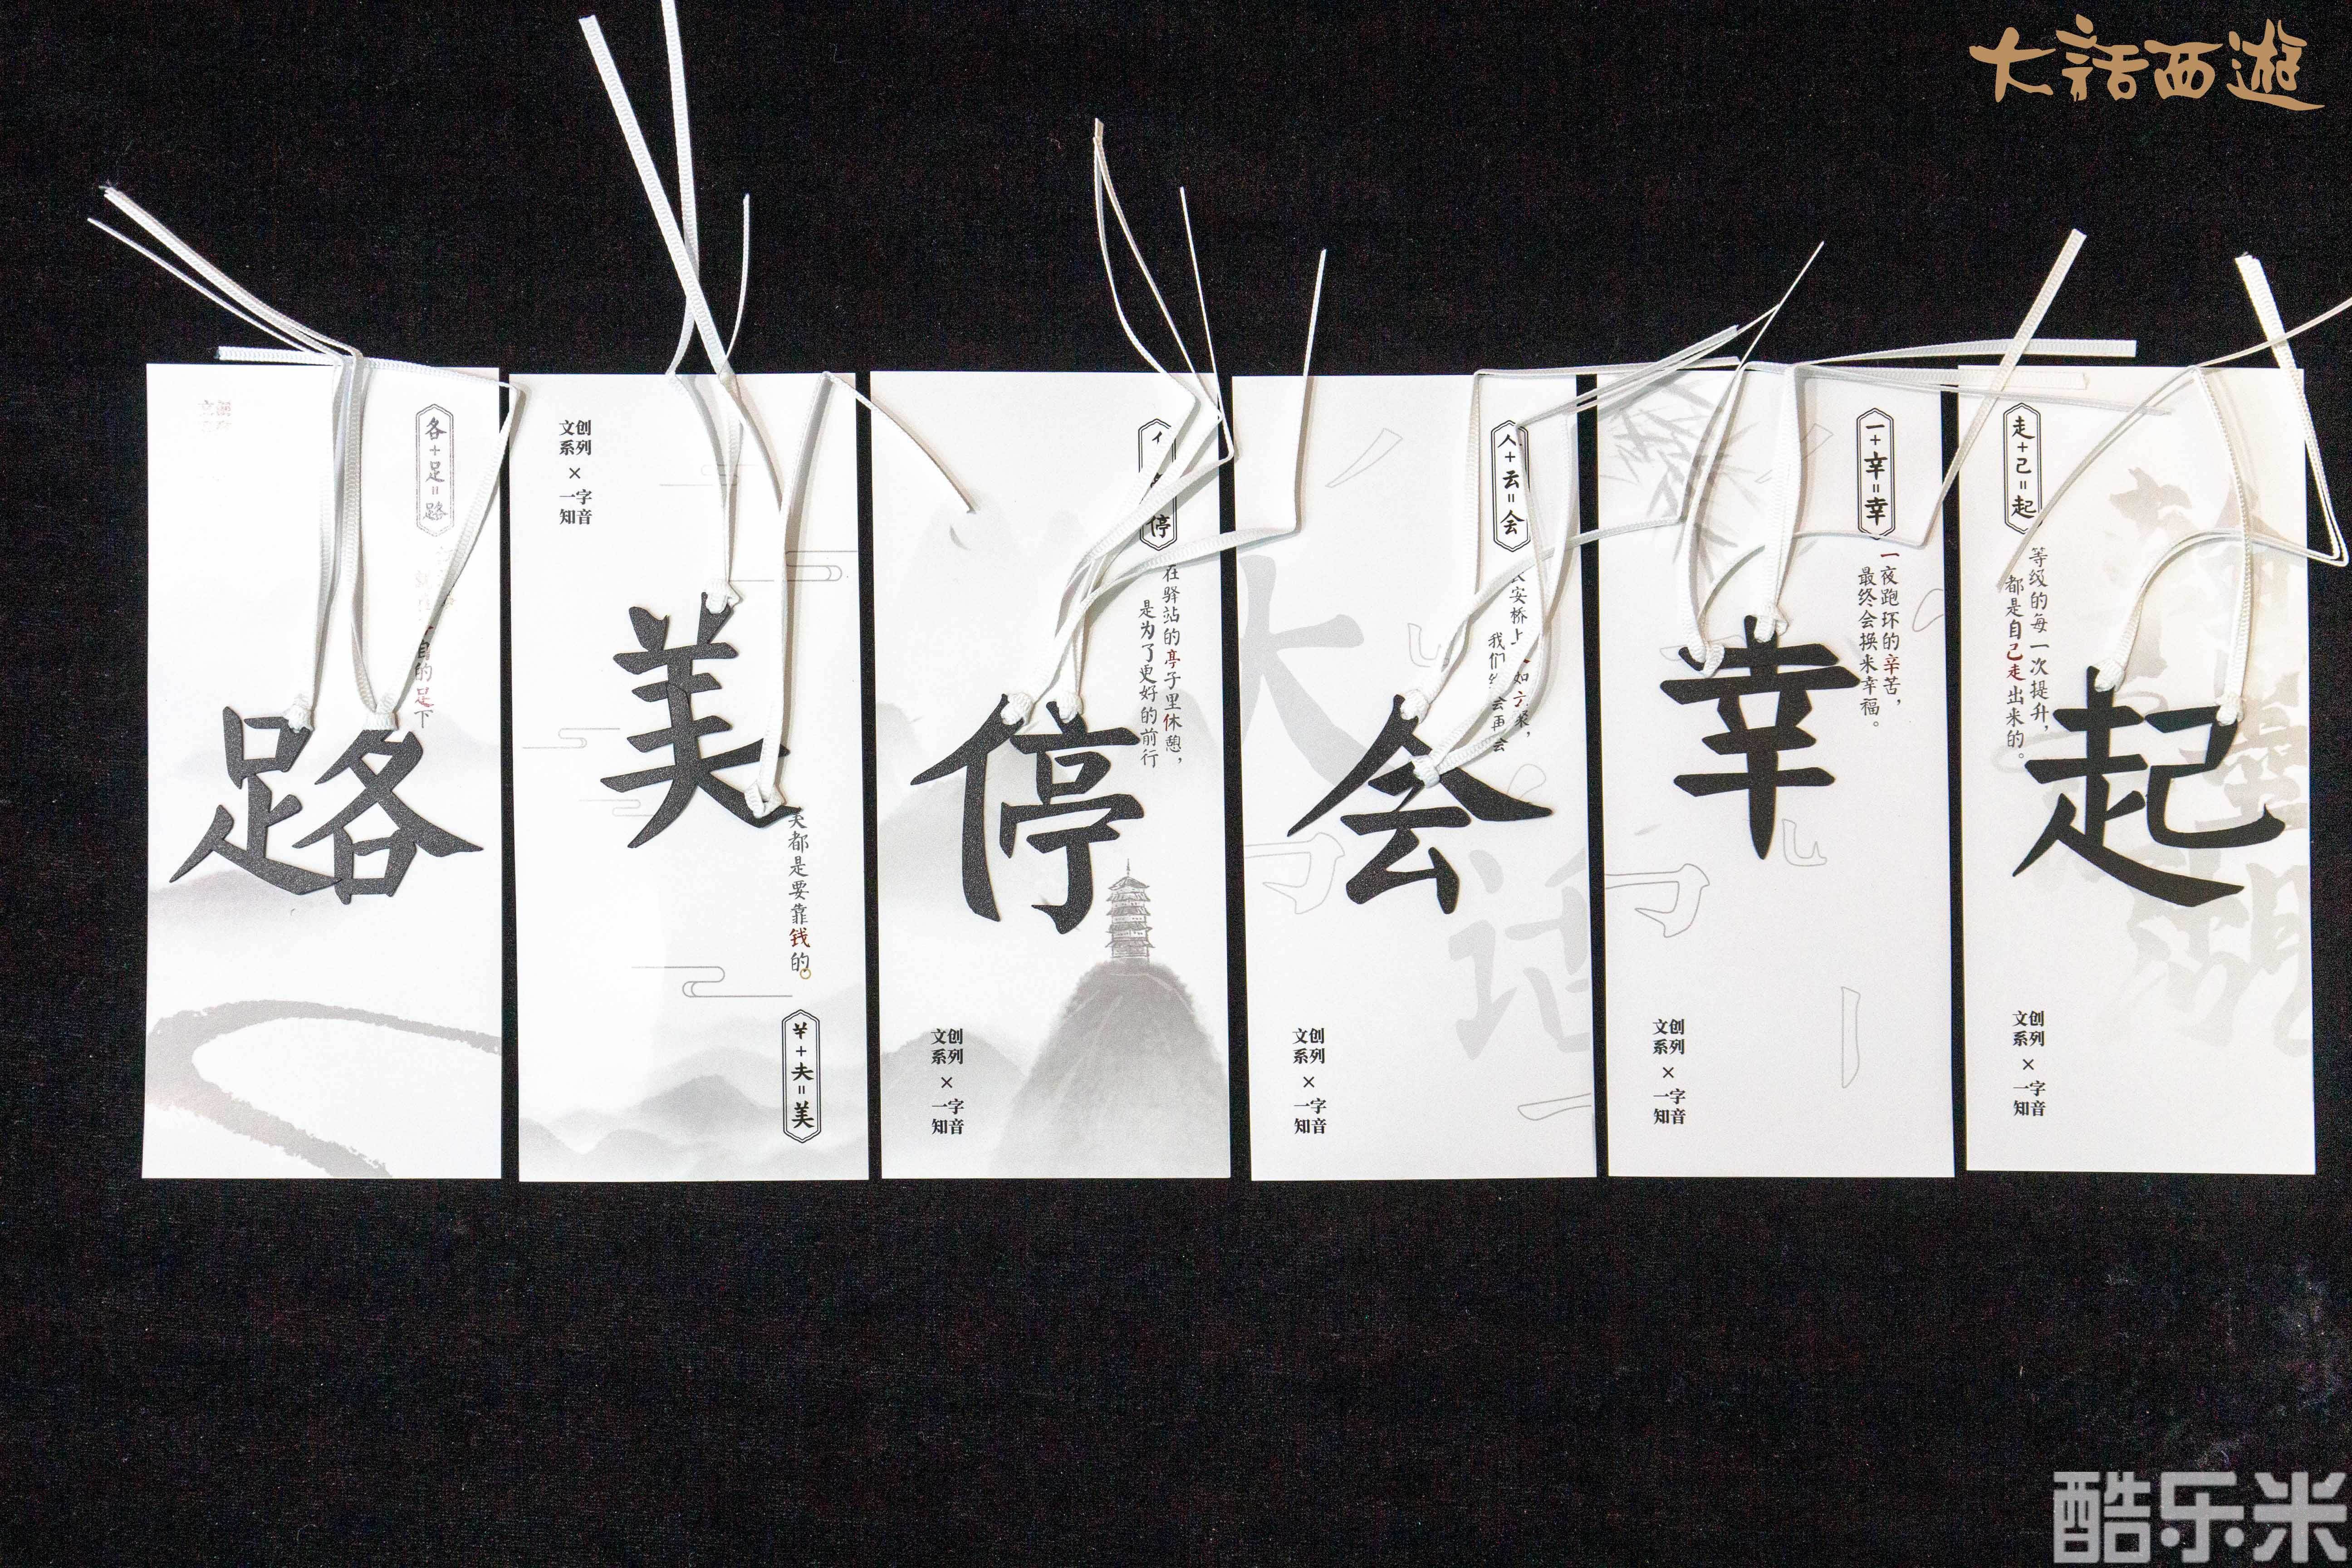 大話西遊
各+足=路
自的足下
路
文创
系列
×
一字
知音
美
美都是要靠钱的
¥+夫=美
停
在驿站的亭子里休憩，
是为了更好的前行
停
文创
系列
×
一字
知音
人+云=会
安桥上
如云
我们
会再会
会
大
话
文创
系列
×
一字
知音
一+辛=幸
一夜跑环的辛苦，
最终会换来幸福。
幸
文创
系列
×
一字
知音
走+己=起
等级的每一次提升，
都是自己走出来的。
起
文创
系列
×
一字
知音
酷乐米